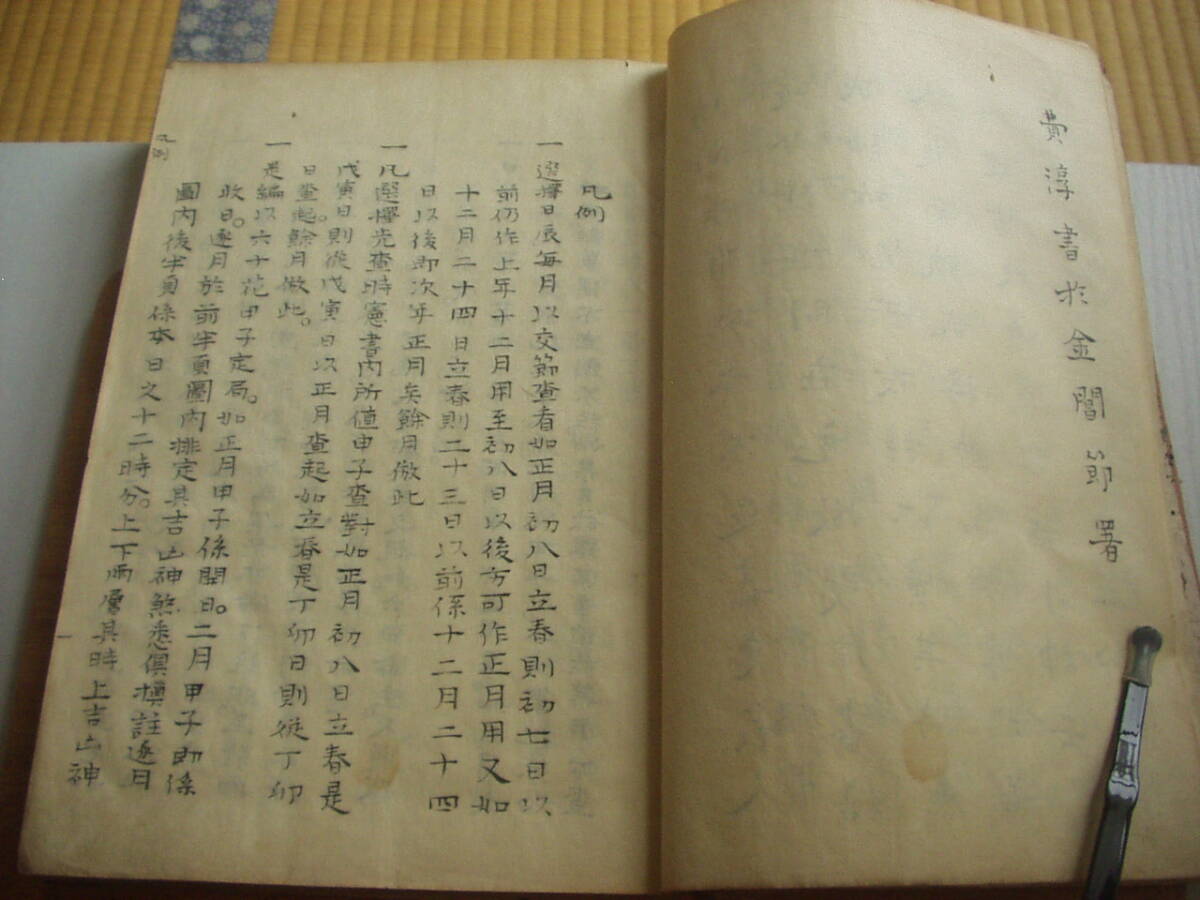 費淳書於金閶節署
凡例
一選擇日辰每月以交節查看如正月初八日立春則初七日以
前仍作上年十二月用至初八日以後方可作正月用又如
十二月二十四日立春則二十三日以前係十二月二十四
日以後即次年正月矣餘月倣此
一凡選擇先查時憲書內所值甲子查對如正月初八日立春是
戊寅日則從戊寅日以正月查起如立春是丁卯日則從丁卯
日查起餘月倣此。
一是編以六十花甲子定局。如正月甲子係開日。二月甲子即係
收日。逐月於前半頁圖內排定其吉凶神煞悉俱橫註逐日
圖內後半頁係本日之十二時分。上下兩層其時上吉凶神
凡例
一